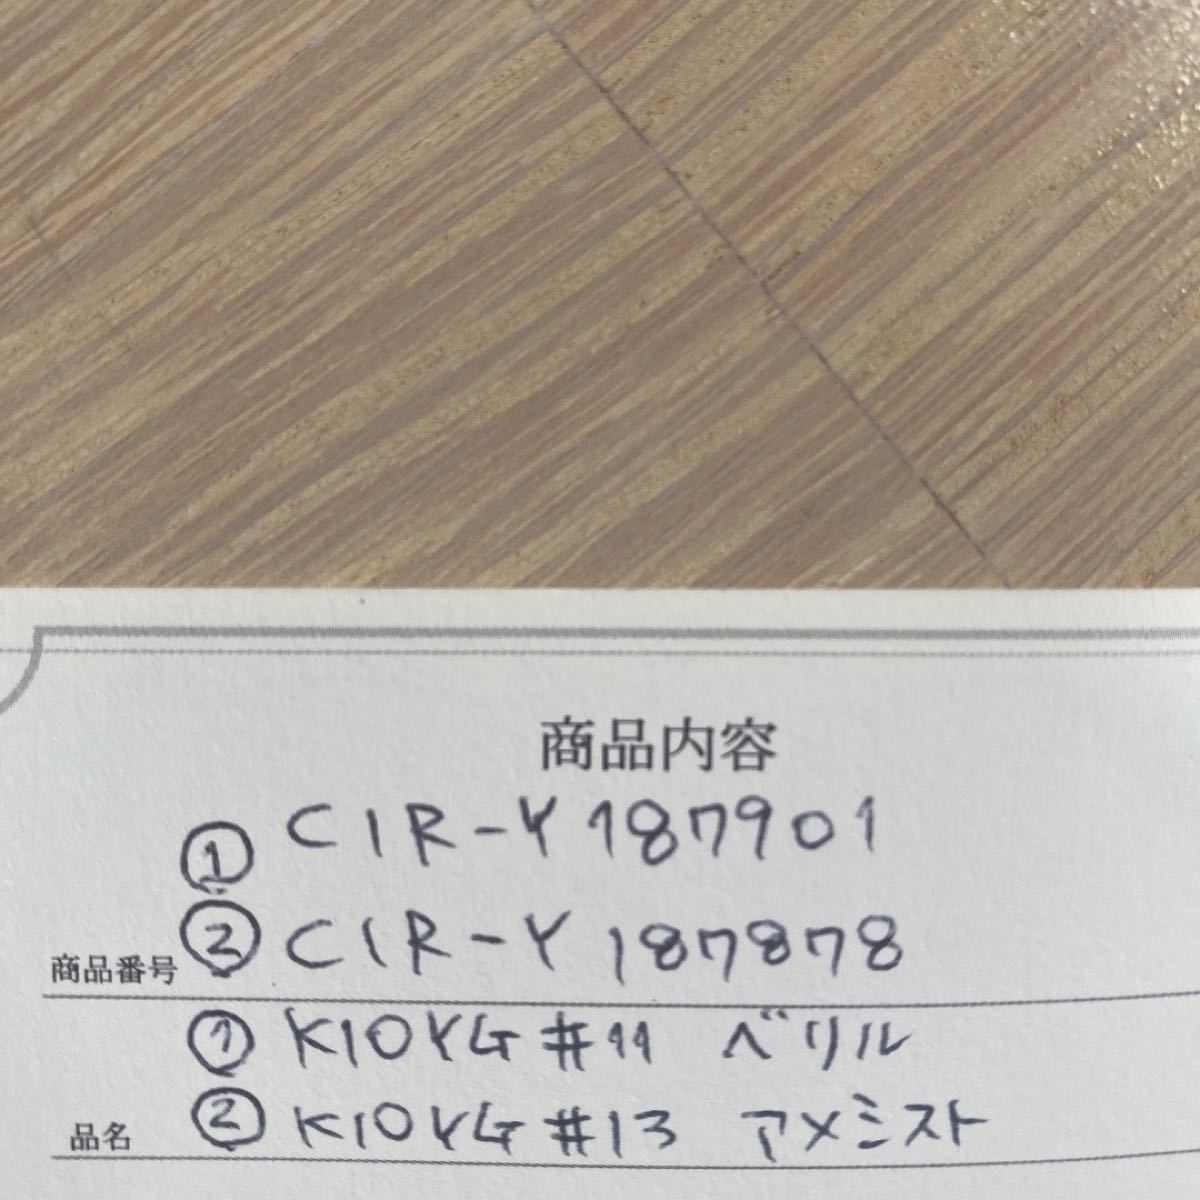 商品内容
① C1R-Y187901
② C1R-Y187878
商品番号
① K10YG #11 ベリル
② K10YG #13 アメミスト
品名